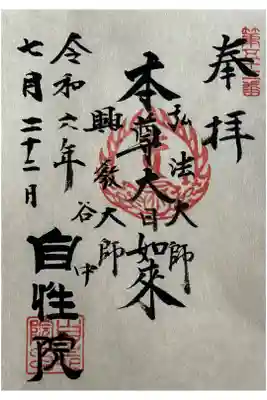 奉拝
第五十一番
弘法大師
本尊大日如來
興教大師
谷中
自性院
令和六年
七月二十二月